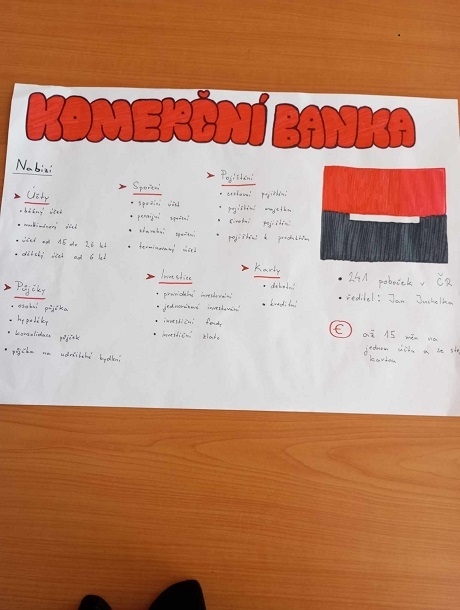 KOMERČNÍ BANKA
Nabízí
Účty
• běžný účet
• multiměnový účet
• účet od 15 do 26 let
• dětský účet od 6 let
Půjčky
• osobní půjčka
• hypotéky
• konsolidace půjček
• půjčka na udržitelné bydlení
Spoření
• spořící účet
• penzijní spoření
• stavební spoření
• termínovaný účet
Investice
• pravidelné investování
• jednorázové investování
• investiční fondy
• investiční zlato
Pojištění
• cestovní pojištění
• pojištění majetku
• životní pojištění
• pojištění k produktům
Karty
• debetní
• kreditní
• 241 poboček v ČR
• ředitel: Jan Juchelka
€ až 15 měn na
jednom účtu a se
kartou